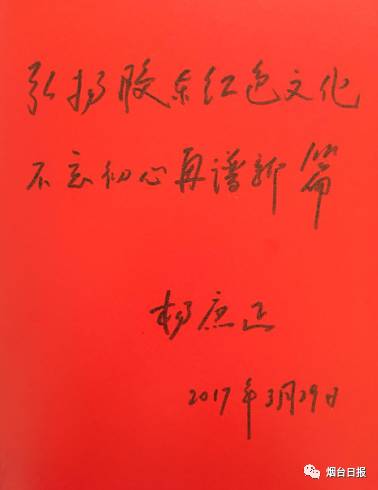 弘扬胶东红色文化
不忘初心再谱新篇
杨
2017年3月29日
烟台日报